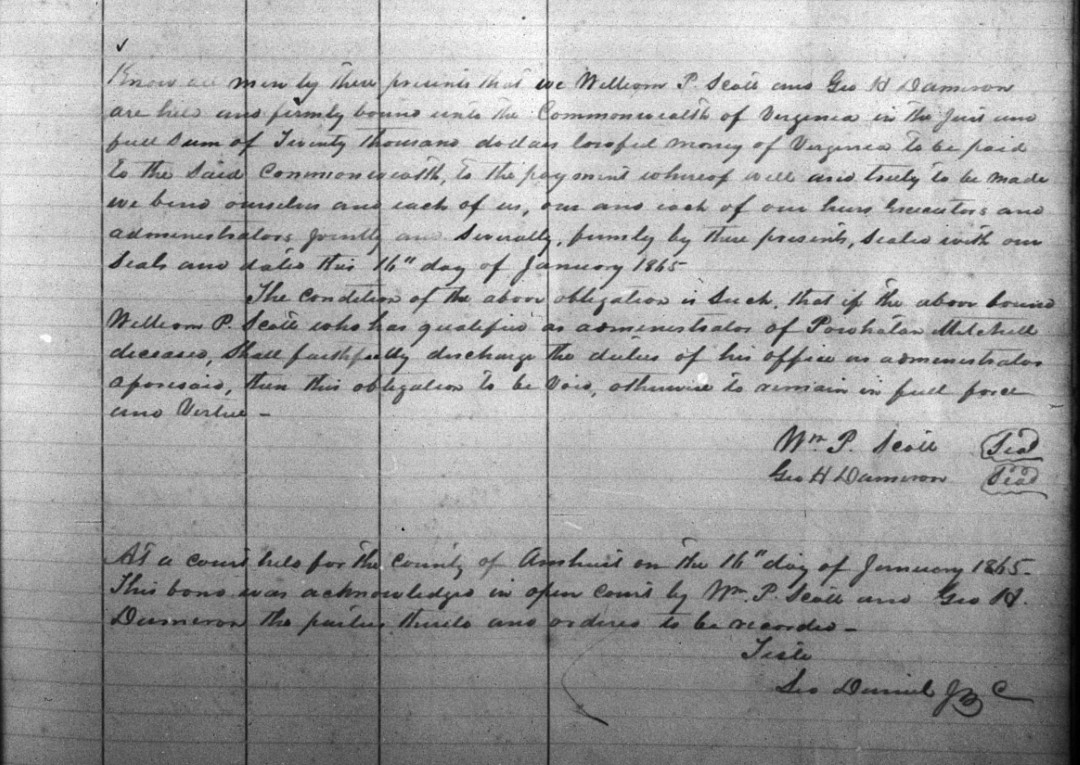 Know all men by these presents that we William P. Scott and Geo H Dameron
are held and firmly bound unto the Commonwealth of Virginia in the Just and
full Sum of Twenty thousand dollars lawful money of Virginia to be paid
to the Said Commonwealth, to the payment whereof well and truly to be made
we bind ourselves and each of us, our and each of our heirs Executors and
administrators jointly and Severally, firmly by these presents, Sealed with our
Seals and dated this 16" day of January 1865
The Condition of the above obligation is Such, that if the above bound
William P. Scott who has qualified as administrator of Powhatan Mitchell
deceased, Shall faithfully discharge the duties of his office as administrator
aforesaid, then this obligation to be Void, otherwise to remain in full force
and Virtue -
Wm P. Scott Seal
Geo H Dameron Seal
At a court held for the county of Amherst on the 16" day of January 1865-
This bond was acknowledged in open court by Wm. P. Scott and Geo H.
Dameron the parties thereto and ordered to be recorded -
Teste
Geo Daniel